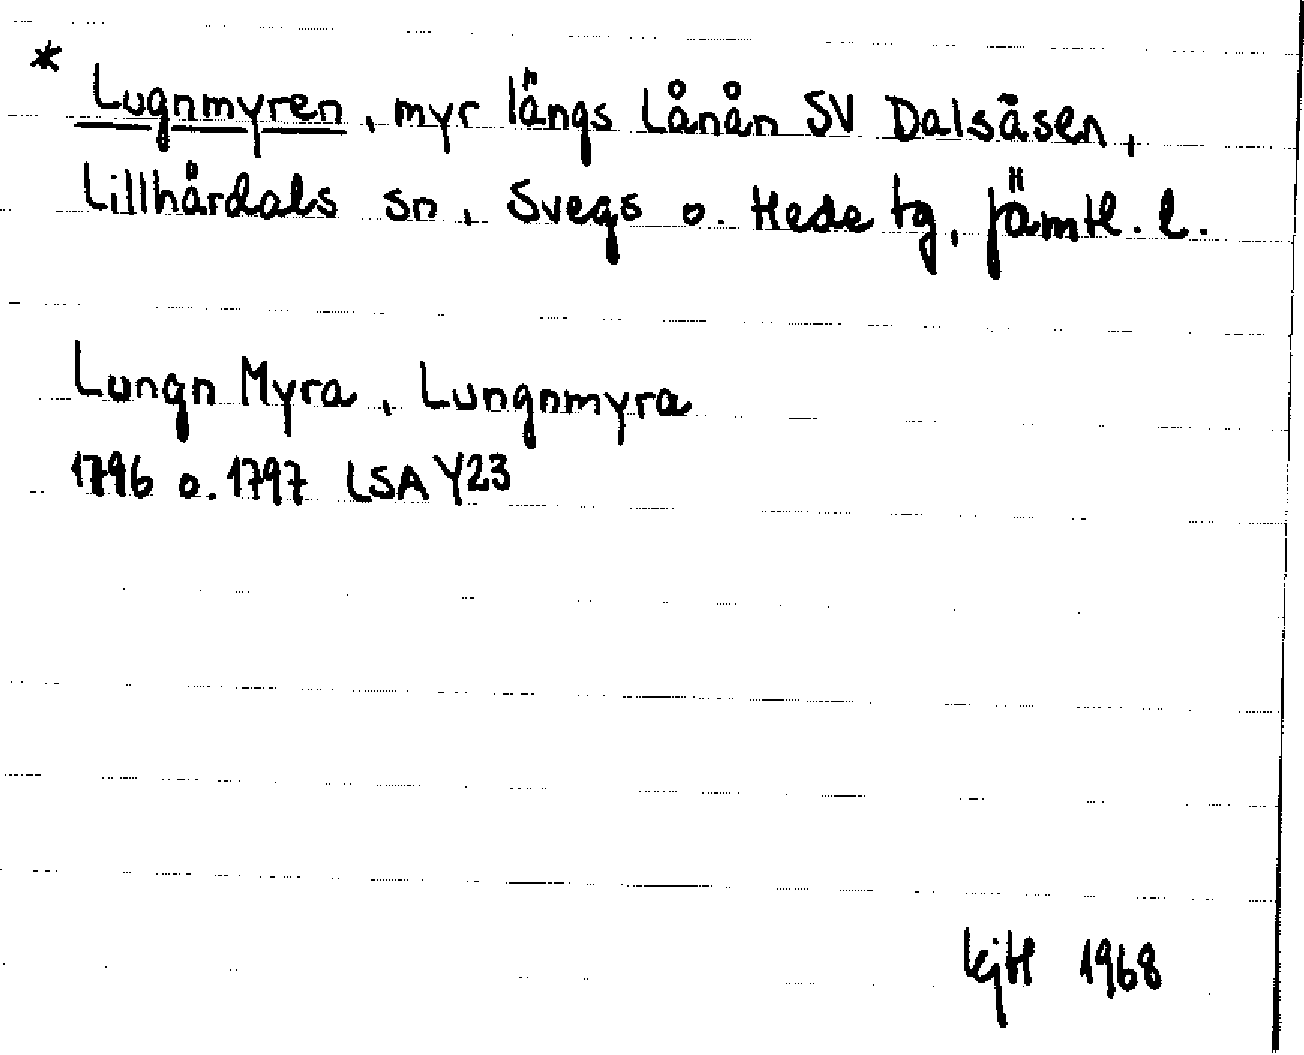 * Lugnmyren, myr längs Lånån SV Dalsåsen,
Lillhärdals sn, Svegs o. Hede tg, Jämtl. l.
Lungn Myra, Lungnmyra
1796 o. 1797 LSA Y23
KjH 1968